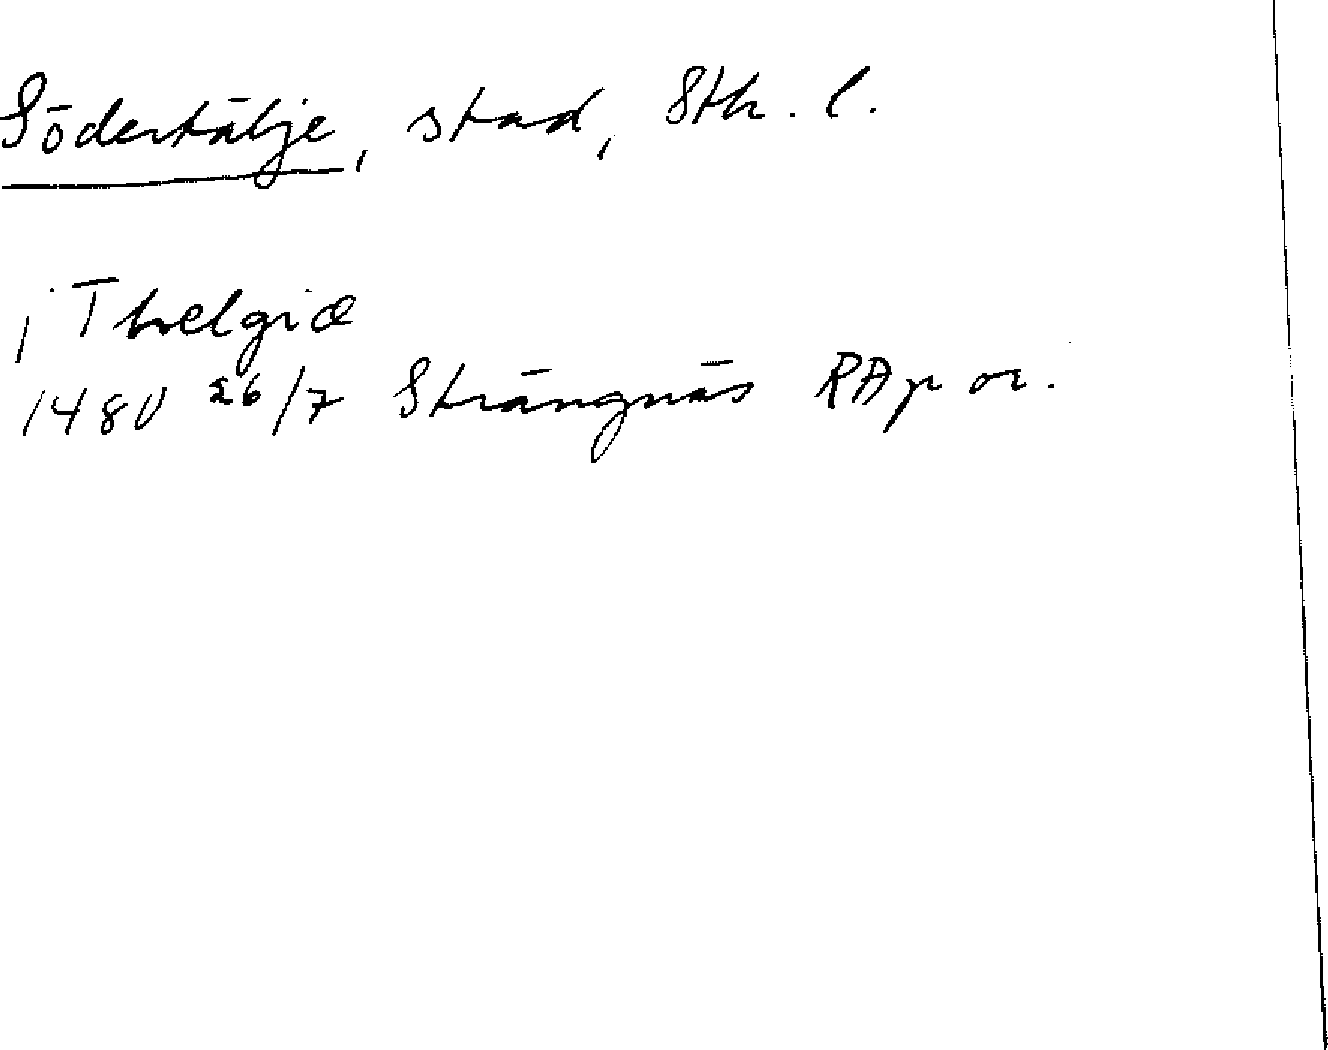 Södertälje, stad, Sth. l.
i Thelgiæ
1480 26/7 Strängnäs RAp or.